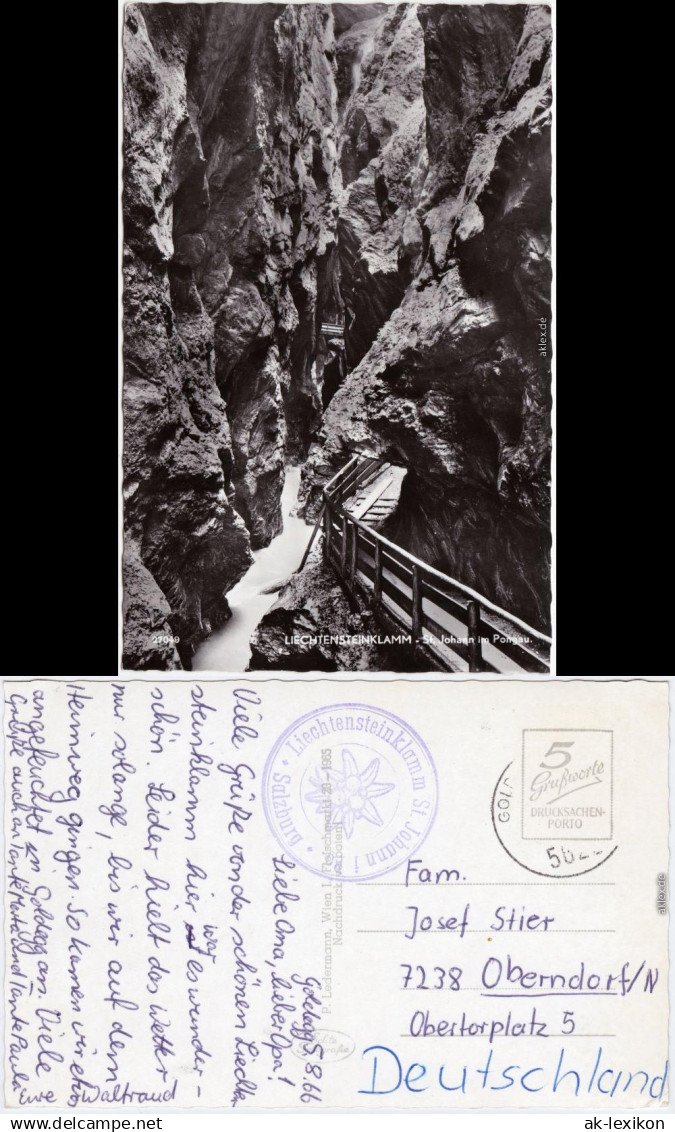 27049
LIECHTENSTEINKLAMM - St. Johann im Pongau.
aklex.de
Goldegg 5.8.66
Liebe Oma, lieber Opa!
Viele Grüße von der schönen Liechten
steinklamm hier war es wunder-
schön. Leider hielt das Wetter
nur solange, bis wir auf dem
Heimweg gingen. So kamen wir etwas
angefeuchtet in Goldegg an. Viele
Grüße auch an Tante und Tante Paula
Eure Waltraud
Liechtensteinklamm St. Johann i
Salzburg
P. Ledermann, Wien I, Fleischmarkt 20 - 1965
Nachdruck verboten!
Echte
5
Grußworte
DRUCKSACHEN-
PORTO
GOLD
562
Fam.
Josef Stier
7238 Oberndorf/N
Obertorplatz 5
Deutschland
aklex.de
www.ak-ansichtskarten.de
ak-lexikon